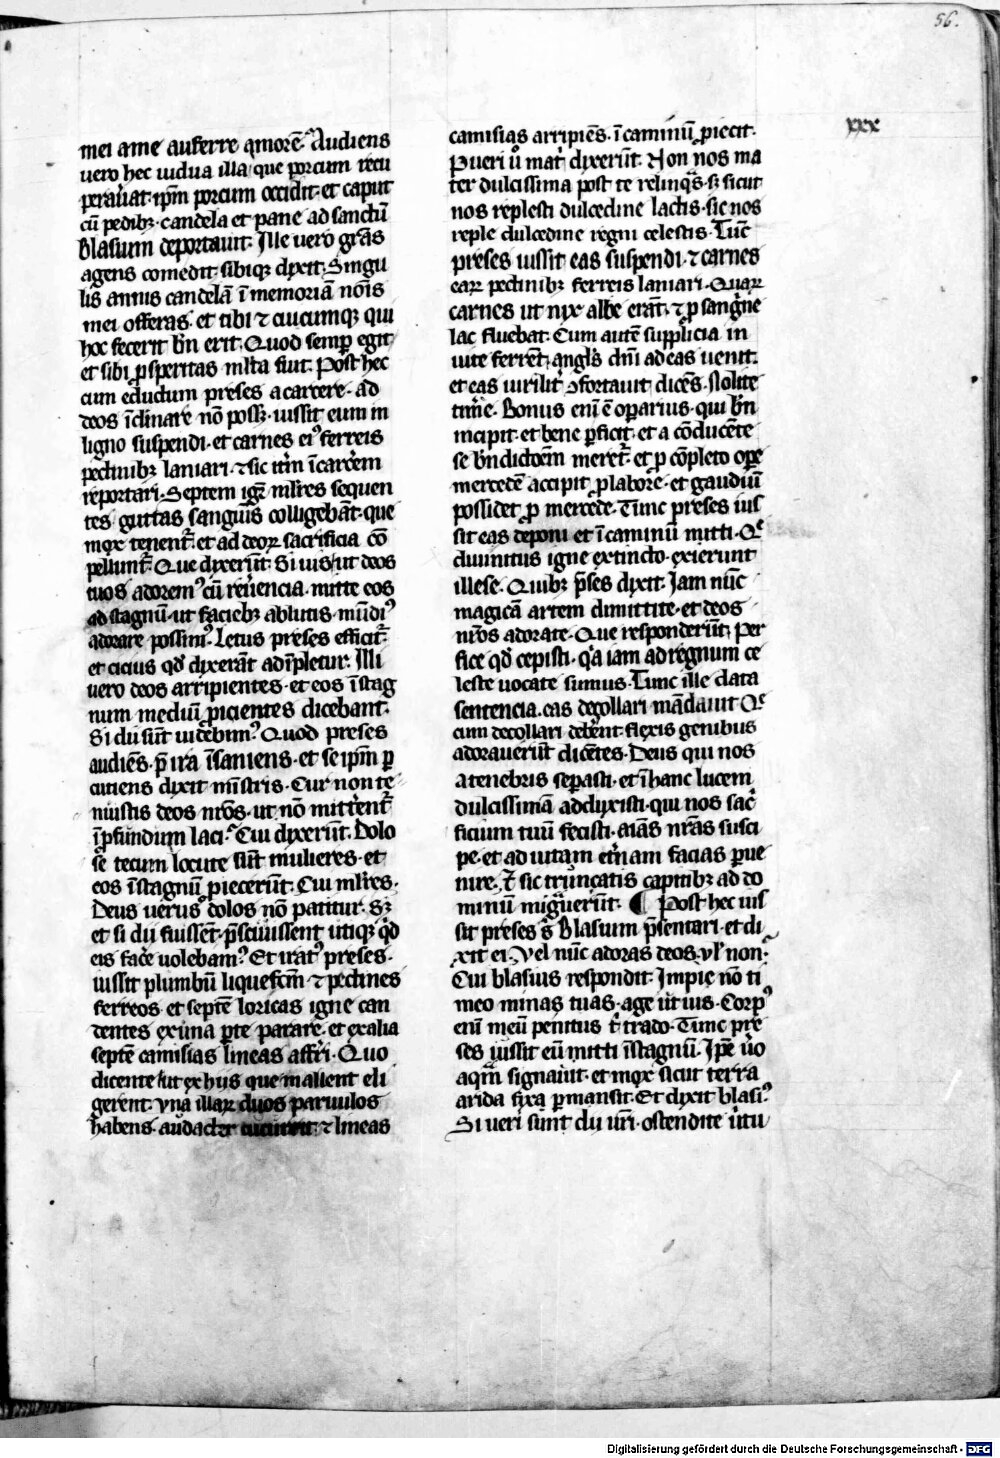 56.
xxx
mei a me auferre amorē. Audiens
uero hec uidua illa que porcum recu
perau̾at ip̄m porcum occidit et caput
cū pedibꝫ candela et pane ad sanctū
blasium deportauit. Ille uero gr̄as
agens comedit sibiqꝫ dixit. Singu
lis annis candelā ī memoriā nōīs
mei offeras. et tibi ⁊ cuicumqꝫ qui
hoc fecerit bn̄ erit. Quod semꝑ egit
et sibi ꝓsperitas ml̄ta fuit. Post hec
cum eductum preses a carcere. ad
deos īclinare nō possꝫ. iussit eum in
ligno suspendi. et carnes eiꝰ ferreis
pectinibꝫ laniari. ⁊ sic itm̄ ī carc̄em
reportari. Septem igr̄ ml̄res sequen
tes guttas sanguīs colligebāt. que
mox tenent᷑. et ad deoꝝ sacrificia cō
pellunt᷑. Que dixerūt. Si uis ut deos
tuos adoremꝰ cū reu̾encia. mitte eos
ad stagnū. ut faciebꝫ ablutis mūdiꝰ
adorare possimꝰ. Letus preses efficit᷑
et cicius qd̄ dixerāt adīpletur. Illi
uero deos arripientes. et eos ī stag
num mediū ꝓicientes dicebant.
Si dii sūt uidebimꝰ. Quod preses
audiēs. p̄ ira īsaniens. et se ip̄m ꝑ
cutiens dixit mīstris. Cur non te
nuistis deos nr̄os. ut nō mitt̾ent᷑
ī ꝓfundum laci. Cui dixerūt. Dolo
se tecum locute sūt mulieres. et
eos ī stagnū ꝓiecerūt. Cui ml̄res.
Deus uerus dolos nō patitur. Sꝫ
et si dii fuissēt. p̄sciuissent utiqꝫ qd̄
eis fac̾e uolebamꝰ. Et iratꝰ preses.
iussit plumbū liquefcm̄ ⁊ pectines
ferreos et septē loricas igne can
dentes ex una ꝑte parare. et ex alia
septē camisias lineas aff̾ri. Quo
dicente ut ex hiis que mallent eli
gerent. vna illaꝝ duos paruulos
habens. audacter cucurrit ⁊ lineas
camisias arripiēs. ī caminū ꝓiecit.
Pueri ū mat̾ dixerūt. Non nos ma
ter dulcissima post te relinqᷓs. sꝫ sicut
nos replesti dulcedine lactis. sic nos
reple dulcedine regni celestis. Tūc
preses iussit eas suspendi. ⁊ carnes
eaꝝ pectinibꝫ ferreis laniari. Quaꝝ
carnes ut nix albe erāt. ⁊ ꝓ sangᷓne
lac fluebat. Cum autē supplicia in
uite ferrēt. angl̄s dn̄i ad eas uenit.
et eas uirilit̾ ꝯfortauit dicēs. Nolite
tim̄e. Bonus enī ē oꝑarius. qui bn̄
incipit. et bene ꝑficit. et a cōducēte
se bn̄dictōem meret᷑. et ꝓ cōpleto oꝑe
mercedē accipit ꝓ labore. et gaudiū
possidet ꝓ mercede. Tunc preses ius
sit eas deponi et ī caminū mitti. Qͤ
diuinitus igne extincto. exierunt
illese. Quibꝫ p̄ses dixit. Jam nūc
magicā artem dimittite. et deos
nr̄os adorate. Que responderūt. Per
fice qd̄ cepisti. qᷓa iam ad regnum ce
leste uocate sumus. Tunc ille data
sentencia. eas decollari mādauit. Qͤ
cum decollari deb̾ent flexis genibus
adorauerūt dicētes. Deus qui nos
a tenebris seꝑasti. et ī hanc lucem
dulcissimā adduxisti. qui nos sac̾
ficium tuū fecisti. aīas nr̄as susci
pe. et ad uitam et̾nam facias ꝑue
nire. Et sic trūncatis capitibꝫ ad do
minū migᷓuerūt. ¶ Post hec ius
sit preses s̄ Blasium p̄sentari. et di
xit ei. Vel nūc adoras deos. vl̄ non.
Cui blasius respondit. Impie nō ti
meo minas tuas. age ut uis. Corpꝰ
enī meū penitus t̾ trado. Tunc pre
ses iussit eū mitti ī stagnū. Ipē ūo
aqᷓm signauit. et mox sicut terra
arida fixa ꝑmansit. Et dixit blasiꝰ.
Si ueri sunt dii ur̄i. ostendite ūtu
Digitalisierung gefördert durch die Deutsche Forschungsgemeinschaft - DFG